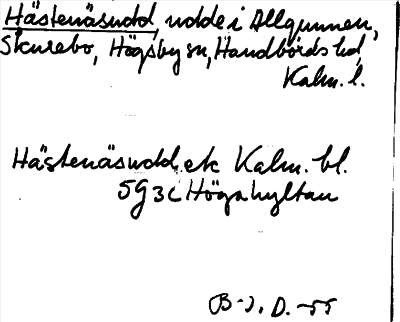 Hästenäsudd, udde i Allgunnen,
Skurebo, Högsby sn, Handbörds hd,
Kalm. l.
Hästenäsudd, ek Kalm. bl.
5G3c Högahyltan
B-J. D. -55